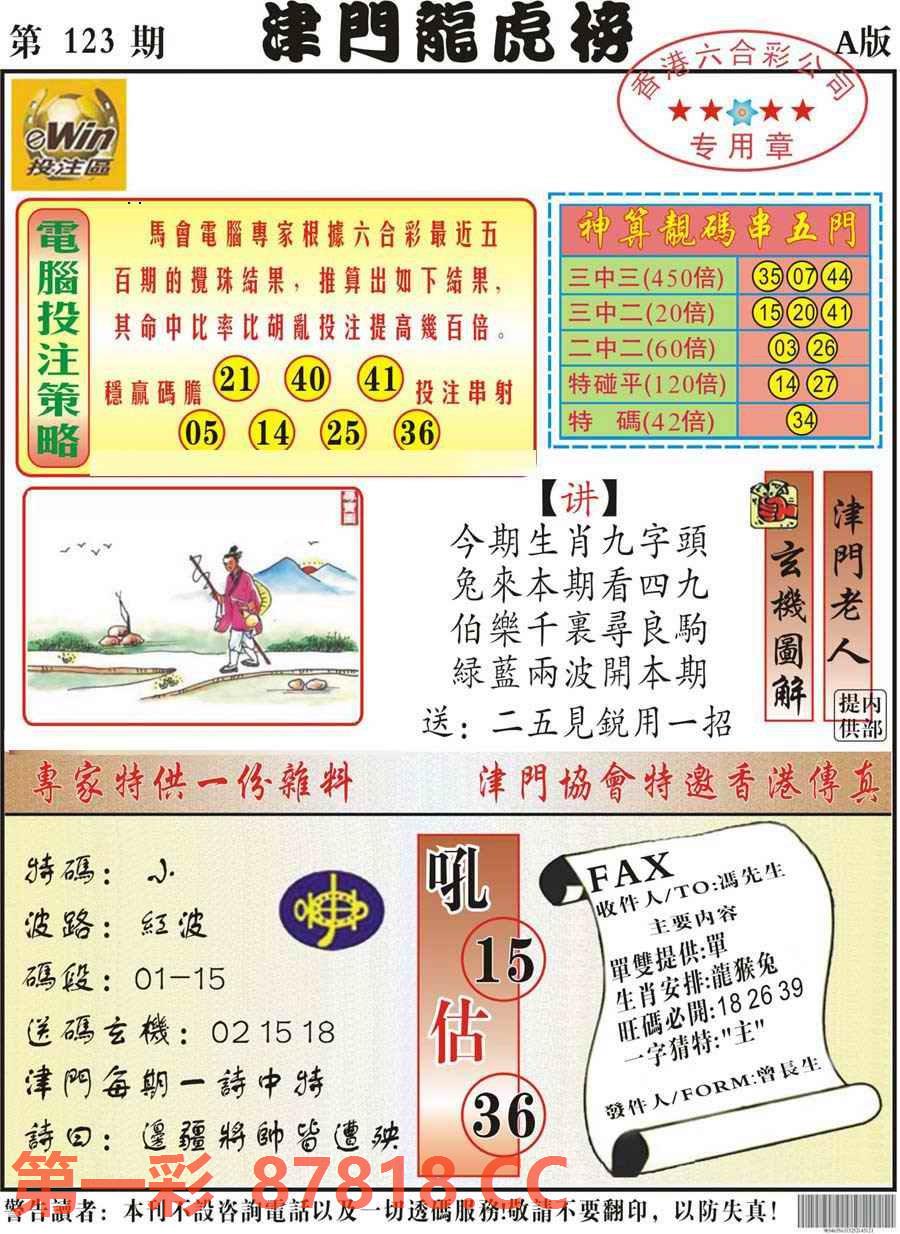 第 123 期
津門龍虎榜
A版
香港六合彩公司
专用章
eWin
投注區
電腦投注策略
馬會電腦專家根據六合彩最近五
百期的攪珠結果，推算出如下結果，
其命中比率比胡亂投注提高幾百倍。
穩贏碼膽 21 40 41 投注串射
05 14 25 36
神算靚碼串五門
三中三(450倍) 35 07 44
三中二(20倍) 15 20 41
二中二(60倍) 03 26
特碰平(120倍) 14 27
特 碼(42倍) 34
【讲】
今期生肖九字頭
兔來本期看四九
伯樂千裏尋良駒
緑藍兩波開本期
送：二五見鋭用一招
玄機圖解
津門老人
提供
内部
專家特供一份雜料
津門協會特邀香港傳真
特碼：小
波路：紅波
碼段：01-15
送碼玄機：02 15 18
津門每期一詩中特
詩曰：邊疆將帥皆遭殃
吼
15
估
36
FAX
收件人/TO:馮先生
主要内容
單雙提供:單
生肖安排:龍猴兔
旺碼必開:18 26 39
一字猜特:"主"
發件人/FORM:曾長生
第一彩 87818.CC
警告讀者：本刊不設咨詢電話以及一切透碼服務!敬請不要翻印，以防失真!